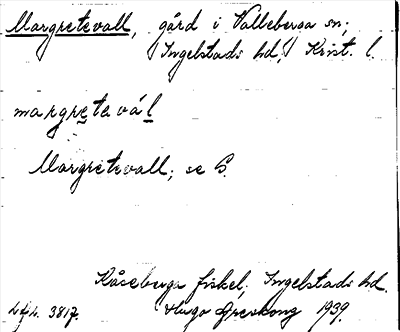 Margretevall, gård i Valleberga sn;
Ingelstads hd; Krist. l.
margreta vál
Margretevall; se S.
Kåseberga fiskel; Ingelstads hd.
Lfl. 3817. Hugo Areskoug 1939.